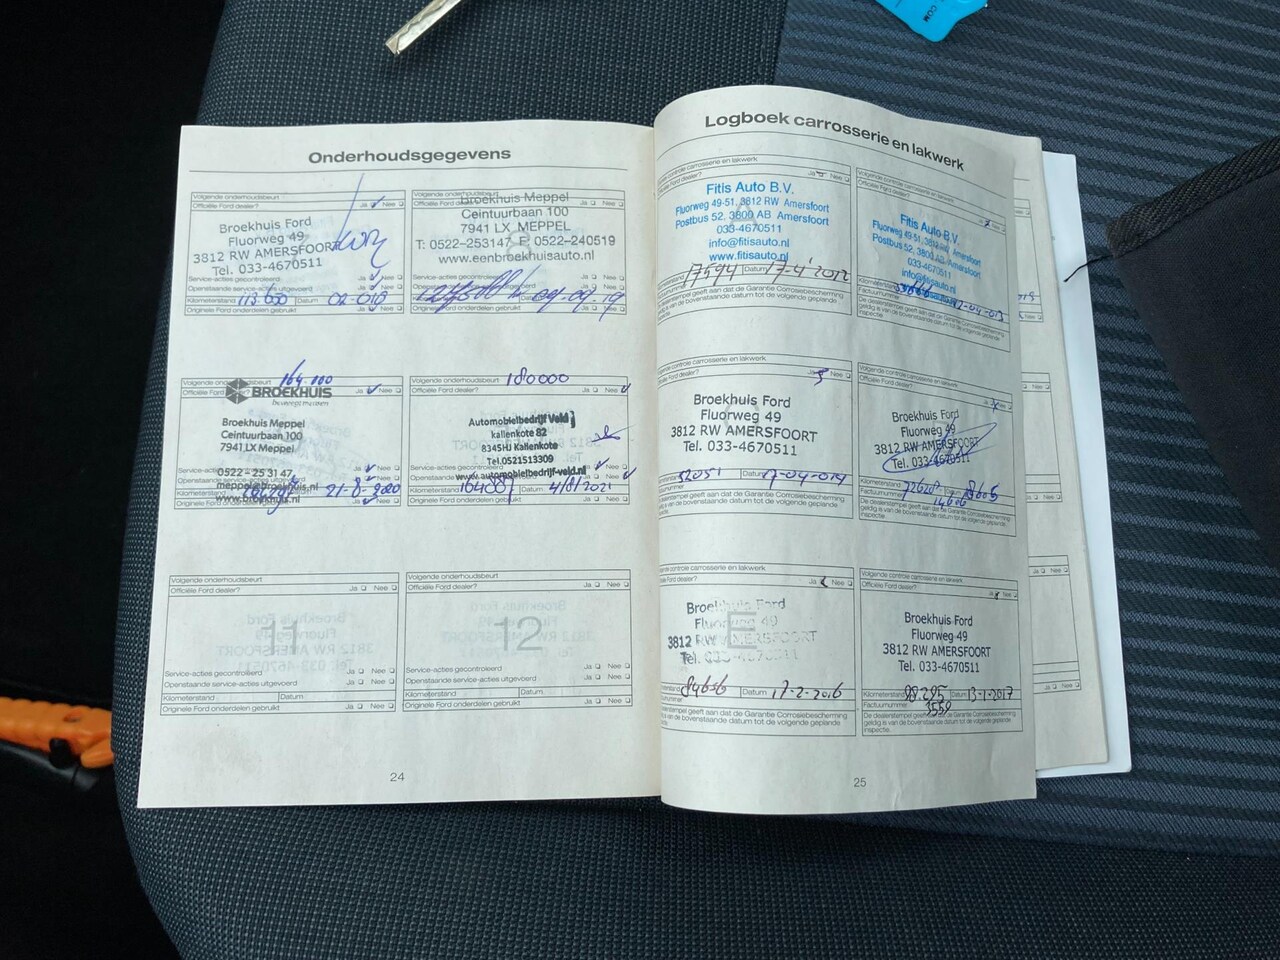 COM
Onderhoudsgegevens
Volgende onderhoudsbeurt
Officiële Ford dealer? Ja Nee
Broekhuis Ford
Fluorweg 49
3812 RW AMERSFOORT
Tel. 033-4670511
Service-acties gecontroleerd Ja Nee
Openstaande service-acties uitgevoerd Ja Nee
Kilometerstand 113.600 Datum 02-018
Originele Ford onderdelen gebruikt Ja Nee
Volgende onderhoudsbeurt
Officiële Ford dealer? Ja Nee
Broekhuis Meppel
Ceintuurbaan 100
7941 LX MEPPEL
T: 0522-253147 F: 0522-240519
www.eenbroekhuisauto.nl
8
Service-acties gecontroleerd
Openstaande service-acties
Kilometerstand Datum 09-09-19
Originele Ford onderdelen gebruikt Ja Nee
Volgende onderhoudsbeurt 164.000
Officiële Ford dealer? Ja Nee
BROEKHUIS
Broekhuis Meppel
Ceintuurbaan 100
7941 LX Meppel
0522-253147
meppel@broekhuis.nl
www.broekhuis.nl
Kilometerstand 21-8-2020
Originele Ford onderdelen Ja Nee
Volgende onderhoudsbeurt 180000
Officiële Ford dealer? Ja Nee
Automobielbedrijf Veld
kallenkote 82
8345HJ Kallenkote
Tel.0521513309
www.automobielbedrijf-veld.nl
Service-acties gecontroleerd Ja Nee
Openstaande service-acties Ja Nee
Kilometerstand Datum 4/8/2021
Originele Ford onderdelen gebruikt Ja Nee
Volgende onderhoudsbeurt
Officiële Ford dealer? Ja Nee
11
Service-acties gecontroleerd Ja Nee
Openstaande service-acties uitgevoerd Ja Nee
Kilometerstand Datum
Originele Ford onderdelen gebruikt Ja Nee
Volgende onderhoudsbeurt
Officiële Ford dealer? Ja Nee
12
Service-acties gecontroleerd Ja Nee
Openstaande service-acties uitgevoerd Ja Nee
Kilometerstand Datum
Originele Ford onderdelen gebruikt Ja Nee
24
Logboek carrosserie en lakwerk
controle carrosserie en lakwerk
Ford dealer? Ja Nee
Fitis Auto B.V.
Fluorweg 49-51, 3812 RW Amersfoort
Postbus 52, 3800 AB Amersfoort
033-4670511
info@fitisauto.nl
www.fitisauto.nl
A
17594 Datum 17-4-2012
De dealerstempel geeft aan dat de Garantie Corrosiebescherming
geldig is van de bovenstaande datum tot de volgende geplande
inspectie.
Volgende controle carrosserie en lakwerk
Officiële Ford dealer? Nee
Fitis Auto B.V.
Fluorweg 49-51, 3812 RW Amersfoort
Postbus 52, 3800 AB Amersfoort
033-4670511
info@fitisauto.nl
Kilometerstand
Factuurnummer
De dealerstempel geeft aan dat de Garantie Corrosiebescherming
geldig is van de bovenstaande datum tot de volgende geplande
inspectie.
controle carrosserie en lakwerk
Ford dealer? Nee
Broekhuis Ford
Fluorweg 49
3812 RW AMERSFOORT
Tel. 033-4670511
52051 Datum 17-04-014
dealerstempel geeft aan dat de Garantie Corrosiebescherming
is van de bovenstaande datum tot de volgende geplande
Volgende controle carrosserie en lakwerk
Officiële Ford dealer? Nee
Broekhuis Ford
Fluorweg 49
3812 RW AMERSFOORT
Tel. 033-4670511
Kilometerstand Datum
Factuurnummer
De dealerstempel geeft aan dat de Garantie Corrosiebescherming
geldig is van de bovenstaande datum tot de volgende geplande
inspectie.
controle carrosserie en lakwerk
Ford dealer? Ja Nee
Broekhuis Ford
Fluorweg 49
3812 RW AMERSFOORT
Tel. 033-4670511
E
84656 Datum 17-2-2016
dealerstempel geeft aan dat de Garantie Corrosiebescherming
is van de bovenstaande datum tot de volgende geplande
Volgende controle carrosserie en lakwerk
Officiële Ford dealer? Ja Nee
Broekhuis Ford
Fluorweg 49
3812 RW AMERSFOORT
Tel. 033-4670511
Kilometerstand 98.295 Datum 13-1-2017
Factuurnummer 3559
De dealerstempel geeft aan dat de Garantie Corrosiebescherming
geldig is van de bovenstaande datum tot de volgende geplande
inspectie.
25